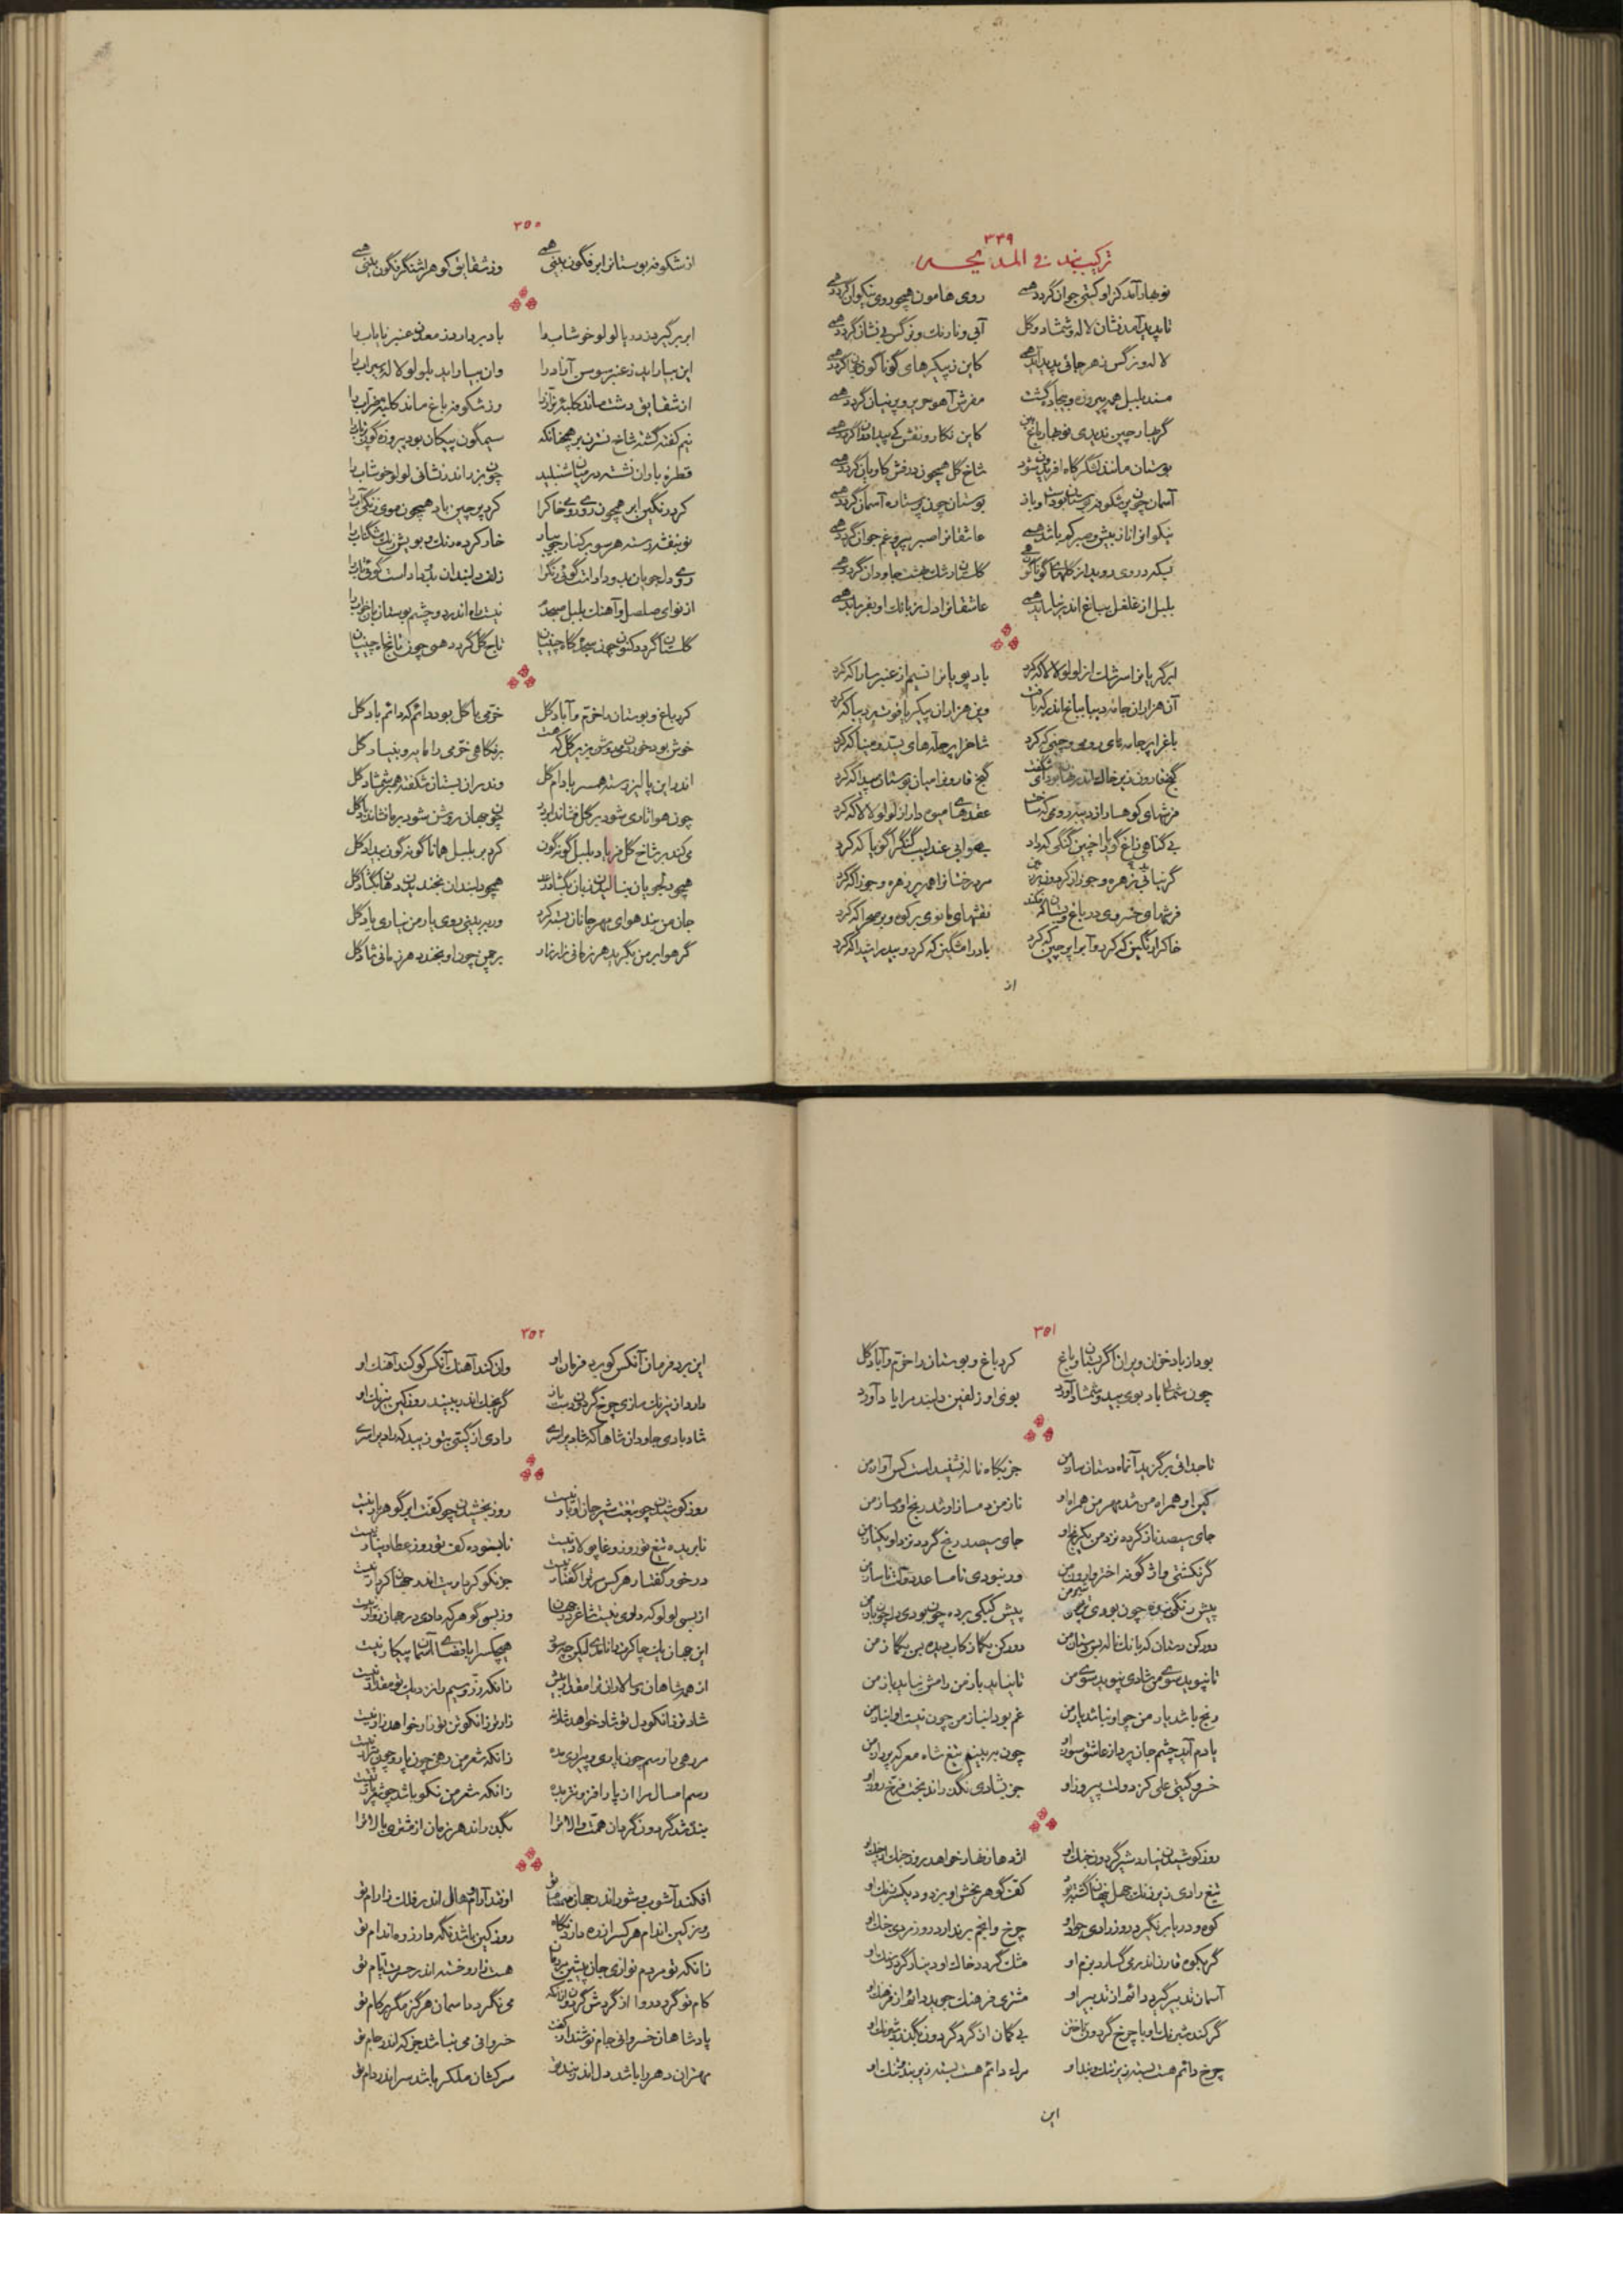 ۳۴۹
ترکیب بند فی المدیحه
نوبهار آمد کزاو گیتی جوان گردد همی روی هامون همچو روی نیکوان گردد همی
تا پدید آمد نشان لاله و شمشاد و گل آبی و نارنگ و نرگس بی نشان گردد همی
لاله و نرگس زهر جائی پدید آید همی کاین زپیکرهای گوناگون گردد همی
مسند بلبل همه پیروزه و بیجاده گشت مفرش آهو حریر و پرنیان گردد همی
گر بهار چین ندیدی نوبهار باغ بین کاین نگار و نقش
بوستان مانند لشگرگاه افریدون شود شاخ گل همچون درفش کاویان گردد همی
آسمان چون پر شکوفه بوستان بوستان چون پر ستاره آسمان گردد همی
نیکوانرا ناز بیش و صبر کم باشد همی عاشقانرا صبر پیر و غم جوان گردد همی
گلستان از رشک هشت جاودان گردد همی
بلبل از غلغل بباغ اندر عاشقانرا دل زبانک او بفریاید همی
ابر گریانرا سرشک از لولو لالا که کرد باد پویانرا نسیم از عنبر سارا که کرد
آن هزاران جامه دیبا بباغ اندر که بافت وین هزاران پیکر یاقوت بر دیبا که کرد
باغرا پر جامه های رومی و چینی که کرد شاخرا پر حله های بسد و مینا که کرد
گنج قارون زیر خاک اندر گنج قارونرا میان بوستان پیدا که کرد
فرشهای کوهسار از دیبه رومی که ساخت عقدهای میوه دار از لولو لالا که کرد
بی گناهی زاغ گویا را چنین گنگی که داد بیهوائی عندلیب گنگ را گویا که کرد
گر نباتی زهره و جوزا مرد رخشانرا همه پر زهره و جوزا که کرد
فرشهای خسروی در باغ و بستان که فکند نقشهای مانوی بر کوه و بر صحرا که کرد
خاکرا رنگین که کرد و آبرا پر چین که کرد باد را مشگین که کرد و بید را شیدا که کرد
از
۳۵۰
از شکوفه بوستانرا بر فگون بینی همی وز شقایق کوهرا شنگرفگون بینی همی
ابر برگیرد زدریا لولو خوشاب را باد بردارد ز معدن عنبر نایاب را
این بیاراید زعنبر سوسن آزاد را وان بیاراید بلولو لاله سیراب را
از شقایق دشت ماند کلبه بزاز را وز شکوفه باغ ماند کلبه
نیم کفته گشته شاخ نسترن بر همچنانکه سیمگون پیکان بود پیروزه گون
قطره باران نشسته در میان شنبلید چون بزر اندر نشانی لولو خوشاب را
کرد رنگین ابر همچون روی رومی خاکرا کرد پر چین باد همچون موی زنگی آب را
نو بنفشه رسته هر سو بر کنار جویبار خار کرده رنگ و بویش
از نوای صلصل و آهنگ بلبل نیست راه اندر دو چشم بوستان بان خواب را
گلستان گردد کنون چون سجده گاه چینیان تاج گل گردد همی چون تاجگاه چینیان
کرد باغ و بوستان را خرم و آباد گل خرمی با گل بود دائم که دائم باد گل
خوش بود خوردن می خوش بزیر گل که هست بر نگاهی خرمی را مایه و بنیاد گل
اندر این پالیز رسته همسر بادام گل وندران بستان شکفته همبر شمشاد گل
چون هوا تاری شود بر گل فشاند ابر در چون جهان روشن شود بر ما فشاند باد گل
می کند بر شاخ گل فریاد بلبل گونه گون کرد بر بلبل همانا گونه گون بیداد گل
همچو دلجویان بنالیدن زبان بگشاد همچو دلبندان بخندیدن دهان بگشاد گل
جان من بند هوای مهر جانان بسته کرد ور ببینی روی یار من نیاری یاد گل
گر هوا بر من بگرید هر زمانی زار زار بر چمن چون او بخندد هر زمانی شاد گل
۳۵۱
بود از باد خزان ویران اگر بستان و باغ کرد باغ و بوستان را خرم و آباد گل
چون شمال باد بوی بید و شمشاد آورد بوی او زلفین دلبند مرا یاد آورد
تا جدائی برگزید آنماه دستان ساز من جز بگاه ناله نشنیده است کس آواز من
کبر او همراه من شد مهر من همراه او ناز من دمساز او شد رنج او دمساز من
جای سیصد ناز گردد نزد من یک رنج او جای سیصد رنج گردد نزد او یک ناز من
گر نگشتی واژگونه اختر وارون من ور نبودی نامساعد دولت ناساز من
پیش کبکی برده چون بودی دل چون باز من
تا نپوید سوی من شادی نپوید سوی من تا نیاید باز من رامش نیاید باز من
رنج باشد یار من چو او نباشد یار من غم بود انباز من چون نیست او انباز من
یادم آید چشم جان پرداز عاشق سوز او چون ببینم تیغ شاه معرکه پرداز من
خسرو گیتی علی کز دولت پیروز او جز بشادی نگذراند بخت فرخ روز او
روز کوشیدن نیارد شیر گردون جنگ او اژدها زنهار خواهد روز جنگ از چنگ او
کوه و دریا برنگیرد روز رادی جود او چرخ و انجم برندارد روز مردی خنگ او
گر بکوه قارن اندر می گسارد بزم او مشک گردد خاک او دینار گردد سنگ او
آسمان تدبیر گیرد دائم از تدبیر او مشتری فرهنگ جوید دائم از فرهنگ او
گر کند شبرنگ او با چرخ گردون تاختن بی گمان از گرد گردون بگذرد شبرنگ او
چرخ دائم هست بسته زیر بند او ماه دائم هست بسته زیر او
این
۳۵۲
این برد فرمان آنکس کو برد فرمان او وان کند آهنگ آنکس کو کند آهنگ او
دارد از نیرنگ سازی چرخ گردون دست باز گر بجنگ اندر ببیند روز کین نیرنگ او
شاد بادی جاودان شاها که شادیرا سزی رادی از گیتی بتو زیبد که رادیرا سزی
روز کوشیدن چو تیغت شیر جان اوبار نیست روز بخشیدن چو کفت ابر گوهر بار نیست
نا بریده تیغ تو روز وغا پولاد نیست نا بسوده کف تو روز عطا دینار نیست
در خور گفتار هر کس مر ترا گفتار جز نکو کردار اندر جهان کردار نیست
از بسی لولو که دادی نیست شاعر در جهان وز بسی گوهر که دادی در جهان زوار نیست
این جهان یک چاکرت را ماندی لیکن چه سود هیچکس را با قضای آسمان پیکار نیست
از همه شاهان و سالاران ترا مقدار بیش زانکه زر و سیم را نزدیک تو مقدار نیست
شاد تر زانکو دل تو شاد خواهد شاد نه زار تر زانکو تن تو زار خواهد زار نیست
مر رهی را رسم چون پار و چو پیراری بده زانکه شعر من رهی چون پار و چون پیرار نیست
رسم امسال مرا از پار افزونتر بده زانکه شعر من نکو باشد چو شعر پار نیست
بنده شد گردون گردان همت والا ترا بگذراند هر زمان از مشتری بالا ترا
افکند آشوب و شور اندر جهان صمصام تو اوفتد آرام و هال اندر فلک ز آرام تو
روز کین اندام هر کس را زره دارد نگاه روز کین باشد نگه دار زره اندام تو
زانکه تو مردم نوازی جان پیشین مردمان هست زار و خسته اندر حسرت ایام تو
کام تو گردد روا از گردش گردون از آنکه می نگردد آسمان هرگز مگر بر کام تو
پادشاهان خسروانی جام نوشند از کفت خسروانی می نباشد جز که اندر جام تو
مهتران دهر را باشد دل اندر بند تو سرکشان ملک را باشد سر اندر دام تو